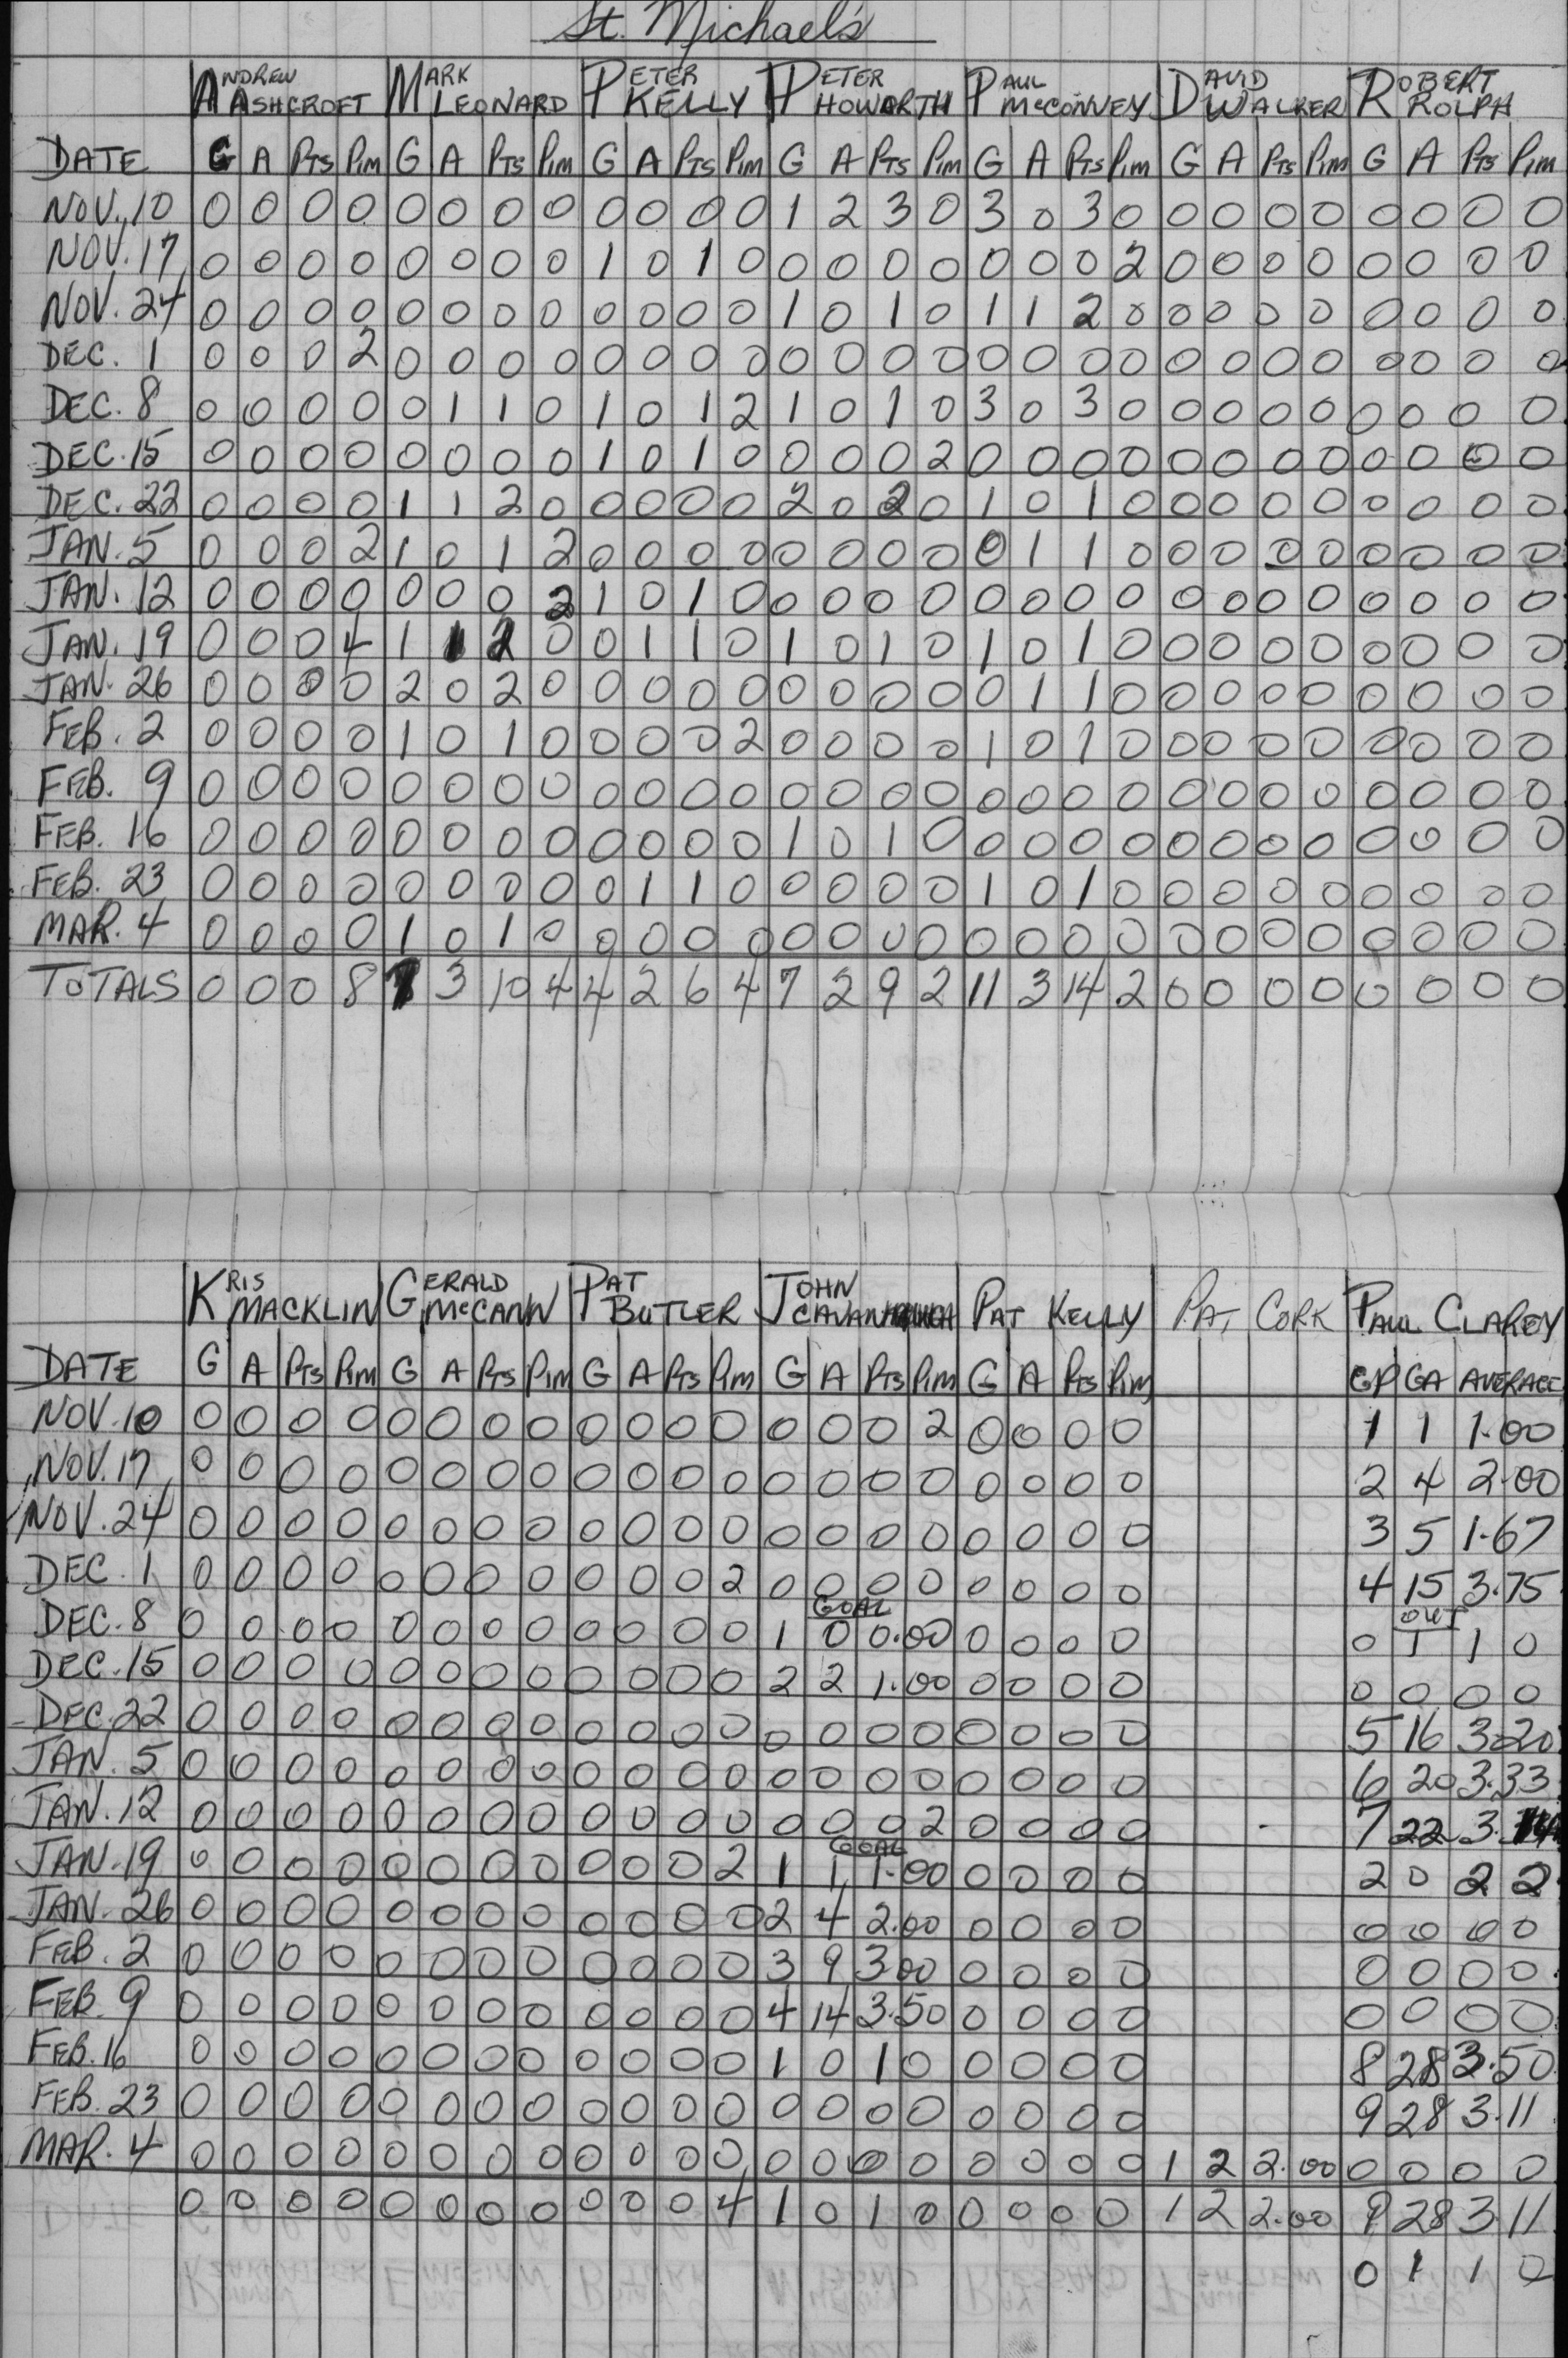 St. Michael's
ANDREW ASHCROFT MARK LEONARD PETER KELLY PETER HOWORTH PAUL McCONVEY DAVID WALKER ROBERT ROLPH
DATE G A PTS PIM G A PTS PIM G A PTS PIM G A PTS PIM G A PTS PIM G A PTS PIM G A PTS PIM
NOV. 10 0 0 0 0 0 0 0 0 0 0 0 0 1 2 3 0 3 0 3 0 0 0 0 0 0 0 0 0
NOV. 17 0 0 0 0 0 0 0 0 1 0 1 0 0 0 0 0 0 0 0 2 0 0 0 0 0 0 0 0
NOV. 24 0 0 0 0 0 0 0 0 0 0 0 0 1 0 1 0 1 1 2 0 0 0 0 0 0 0 0 0
DEC. 1 0 0 0 2 0 0 0 0 0 0 0 0 0 0 0 0 0 0 0 0 0 0 0 0 0 0 0 0
DEC. 8 0 0 0 0 0 1 1 0 1 0 1 2 1 0 1 0 3 0 3 0 0 0 0 0 0 0 0 0
DEC. 15 0 0 0 0 0 0 0 0 1 0 1 0 0 0 0 2 0 0 0 0 0 0 0 0 0 0 0 0
DEC. 22 0 0 0 0 1 1 2 0 0 0 0 0 2 0 2 0 1 0 1 0 0 0 0 0 0 0 0 0
JAN. 5 0 0 0 2 1 0 1 2 0 0 0 0 0 0 0 0 0 1 1 0 0 0 0 0 0 0 0 0
JAN. 12 0 0 0 0 0 0 0 2 1 0 1 0 0 0 0 0 0 0 0 0 0 0 0 0 0 0 0 0
JAN. 19 0 0 0 4 1 1 2 0 0 1 1 0 1 0 1 0 1 0 1 0 0 0 0 0 0 0 0 0
JAN. 26 0 0 0 0 2 0 2 0 0 0 0 0 0 0 0 0 0 1 1 0 0 0 0 0 0 0 0 0
FEB. 2 0 0 0 0 1 0 1 0 0 0 0 2 0 0 0 0 1 0 1 0 0 0 0 0 0 0 0 0
FEB. 9 0 0 0 0 0 0 0 0 0 0 0 0 0 0 0 0 0 0 0 0 0 0 0 0 0 0 0 0
FEB. 16 0 0 0 0 0 0 0 0 0 0 0 0 1 0 1 0 0 0 0 0 0 0 0 0 0 0 0 0
FEB. 23 0 0 0 0 0 0 0 0 0 1 1 0 0 0 0 0 1 0 1 0 0 0 0 0 0 0 0 0
MAR. 4 0 0 0 0 1 0 1 0 0 0 0 0 0 0 0 0 0 0 0 0 0 0 0 0 0 0 0 0
TOTALS 0 0 0 8 7 3 10 4 4 2 6 4 7 2 9 2 11 3 14 2 0 0 0 0 0 0 0 0
KRIS MACKLIN GERALD McCANN PAT BUTLER JOHN PAT KELLY PAT CORK PAUL CLAREY
DATE G A PTS PIM G A PTS PIM G A PTS PIM G A PTS PIM G A PTS PIM GP GA AVERAGE
NOV. 10 0 0 0 0 0 0 0 0 0 0 0 0 0 0 0 2 0 0 0 0 1 1 1.00
NOV. 17 0 0 0 0 0 0 0 0 0 0 0 0 0 0 0 0 0 0 0 0 2 4 2.00
NOV. 24 0 0 0 0 0 0 0 0 0 0 0 0 0 0 0 0 0 0 0 0 3 5 1.67
DEC. 1 0 0 0 0 0 0 0 0 0 0 0 2 0 0 0 0 0 0 0 0 4 15 3.75
GOAL OUT
DEC. 8 0 0 0 0 0 0 0 0 0 0 0 0 1 0 0.00 0 0 0 0 0 1 1 0
DEC. 15 0 0 0 0 0 0 0 0 0 0 0 0 2 2 1.00 0 0 0 0 0 0 0 0
DEC. 22 0 0 0 0 0 0 0 0 0 0 0 0 0 0 0 0 0 0 0 0 5 16 3.20
JAN. 5 0 0 0 0 0 0 0 0 0 0 0 0 0 0 0 0 0 0 0 0 6 20 3.33
JAN. 12 0 0 0 0 0 0 0 0 0 0 0 0 0 0 0 2 0 0 0 0 7 22 3.14
GOAL
JAN. 19 0 0 0 0 0 0 0 0 0 0 0 2 1 1 1.00 0 0 0 0 2 0 2 2
JAN. 26 0 0 0 0 0 0 0 0 0 0 0 0 2 4 2.00 0 0 0 0 0 0 0 0
FEB. 2 0 0 0 0 0 0 0 0 0 0 0 0 3 9 3.00 0 0 0 0 0 0 0 0
FEB. 9 0 0 0 0 0 0 0 0 0 0 0 0 4 14 3.50 0 0 0 0 0 0 0 0
FEB. 16 0 0 0 0 0 0 0 0 0 0 0 0 1 0 1 0 0 0 0 0 8 28 3.50
FEB. 23 0 0 0 0 0 0 0 0 0 0 0 0 0 0 0 0 0 0 0 0 9 28 3.11
MAR. 4 0 0 0 0 0 0 0 0 0 0 0 0 0 0 0 0 0 0 0 0 1 2 2.00 0 0 0 0
0 0 0 0 0 0 0 0 0 0 0 4 1 0 1 0 0 0 0 0 1 2 2.00 9 28 3.11
0 1 1 0